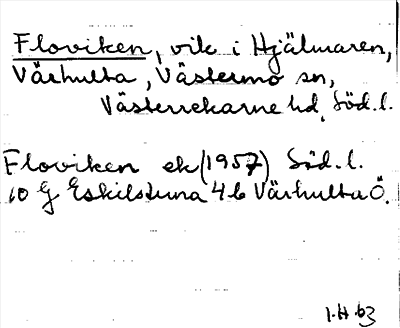 Floviken, vik i Hjälmaren,
Värhulta, Västermo sn,
Västerrekarne hd, Söd.l.
Floviken ek (1957) Söd.l.
10 G Eskilstuna 4b Värhulta Ö.
I.H. 63